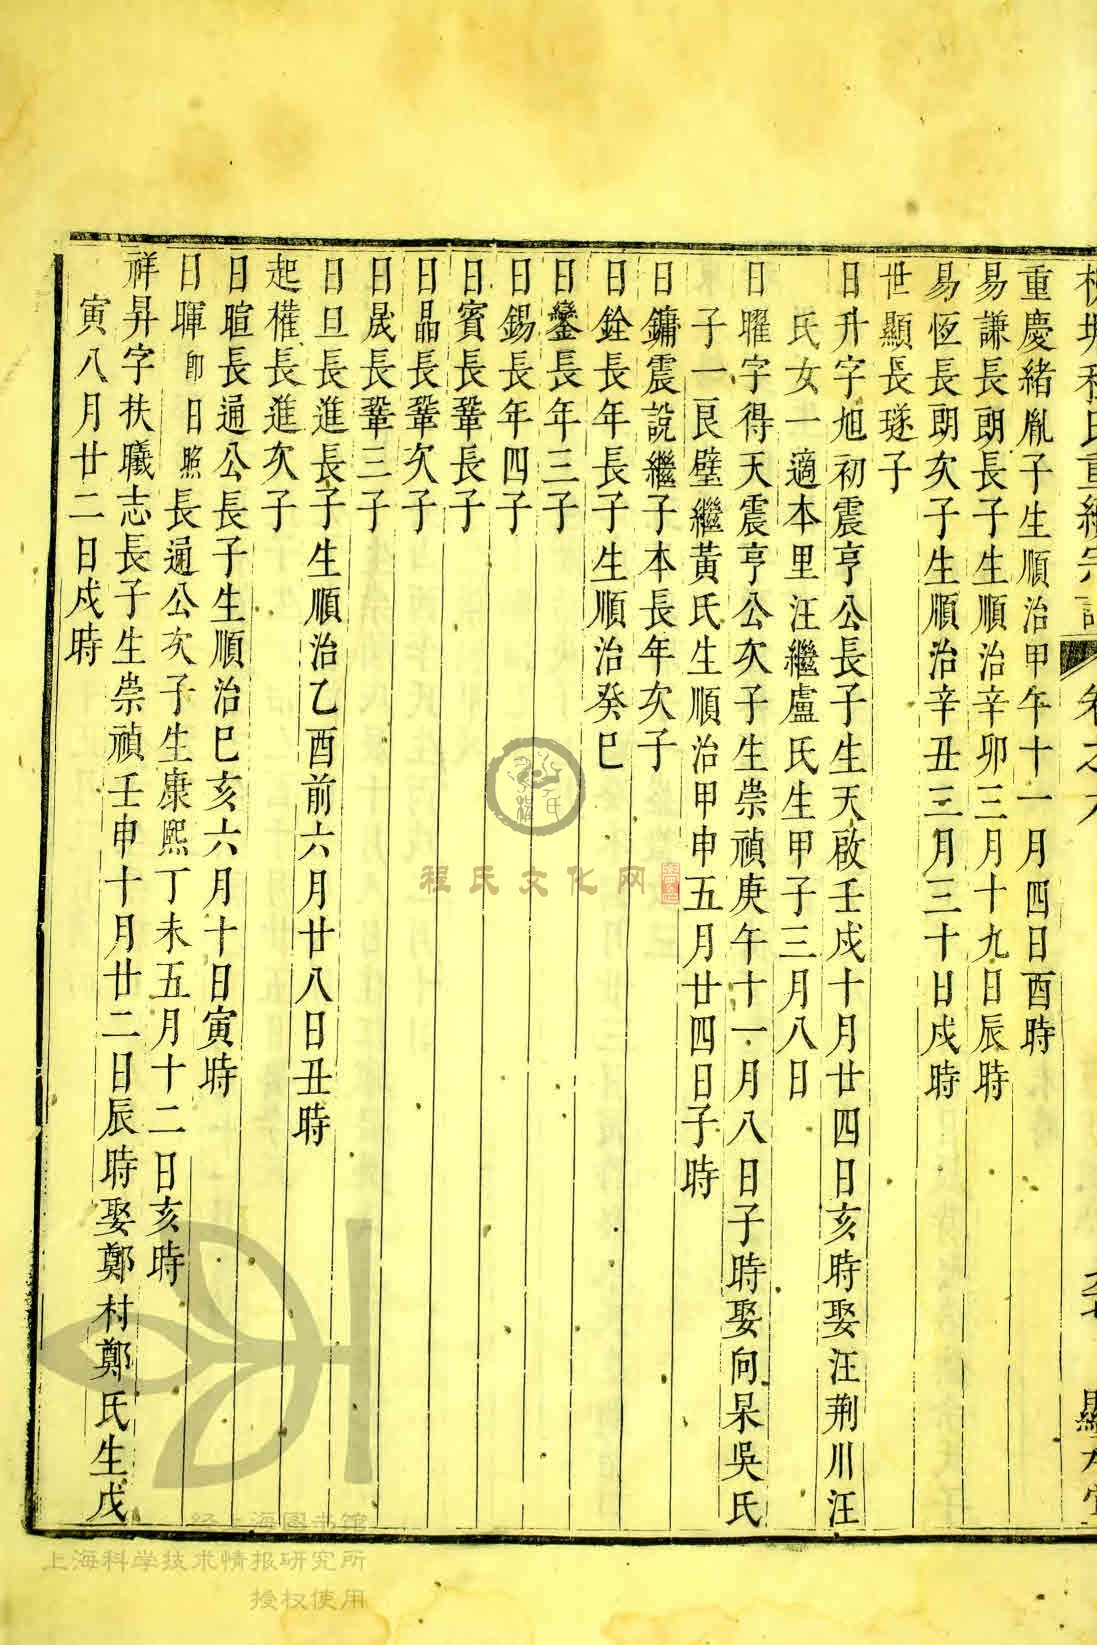 重慶緒胤子生順治甲午十一月四日酉時
易謙長朗長子生順治辛卯三月十九日辰時
易恆長朗次子生順治辛丑三月三十日戍時
世顯長璲子
日升字旭初震亨公長子生天啟壬戍十月廿四日亥時娶汪荆川汪
氏女一適本里汪繼盧氏生甲子三月八日
日曜字得天震亨公次子生崇禎庚午十一月八日子時娶向杲吳氏
子一艮壁繼黃氏生順治甲申五月廿四日子時
日鏞震說繼子本長年次子
日銓長年長子生順治癸巳
日鑾長年三子
日錫長年四子
日賓長鞏長子
日晶長鞏次子
日晟長鞏三子
日旦長進長子生順治乙酉前六月廿八日丑時
起權長進次子
日暄長通公長子生順治巳亥六月十日寅時
日暉即日照長通公次子生康熙丁未五月十二日亥時
祥昇字扶曦志長子生崇禎壬申十月廿二日辰時娶鄭村鄭氏生戊
寅八月廿二日戍時
程氏文化网
经上海图书馆
上海科学技术情报研究所
授权使用